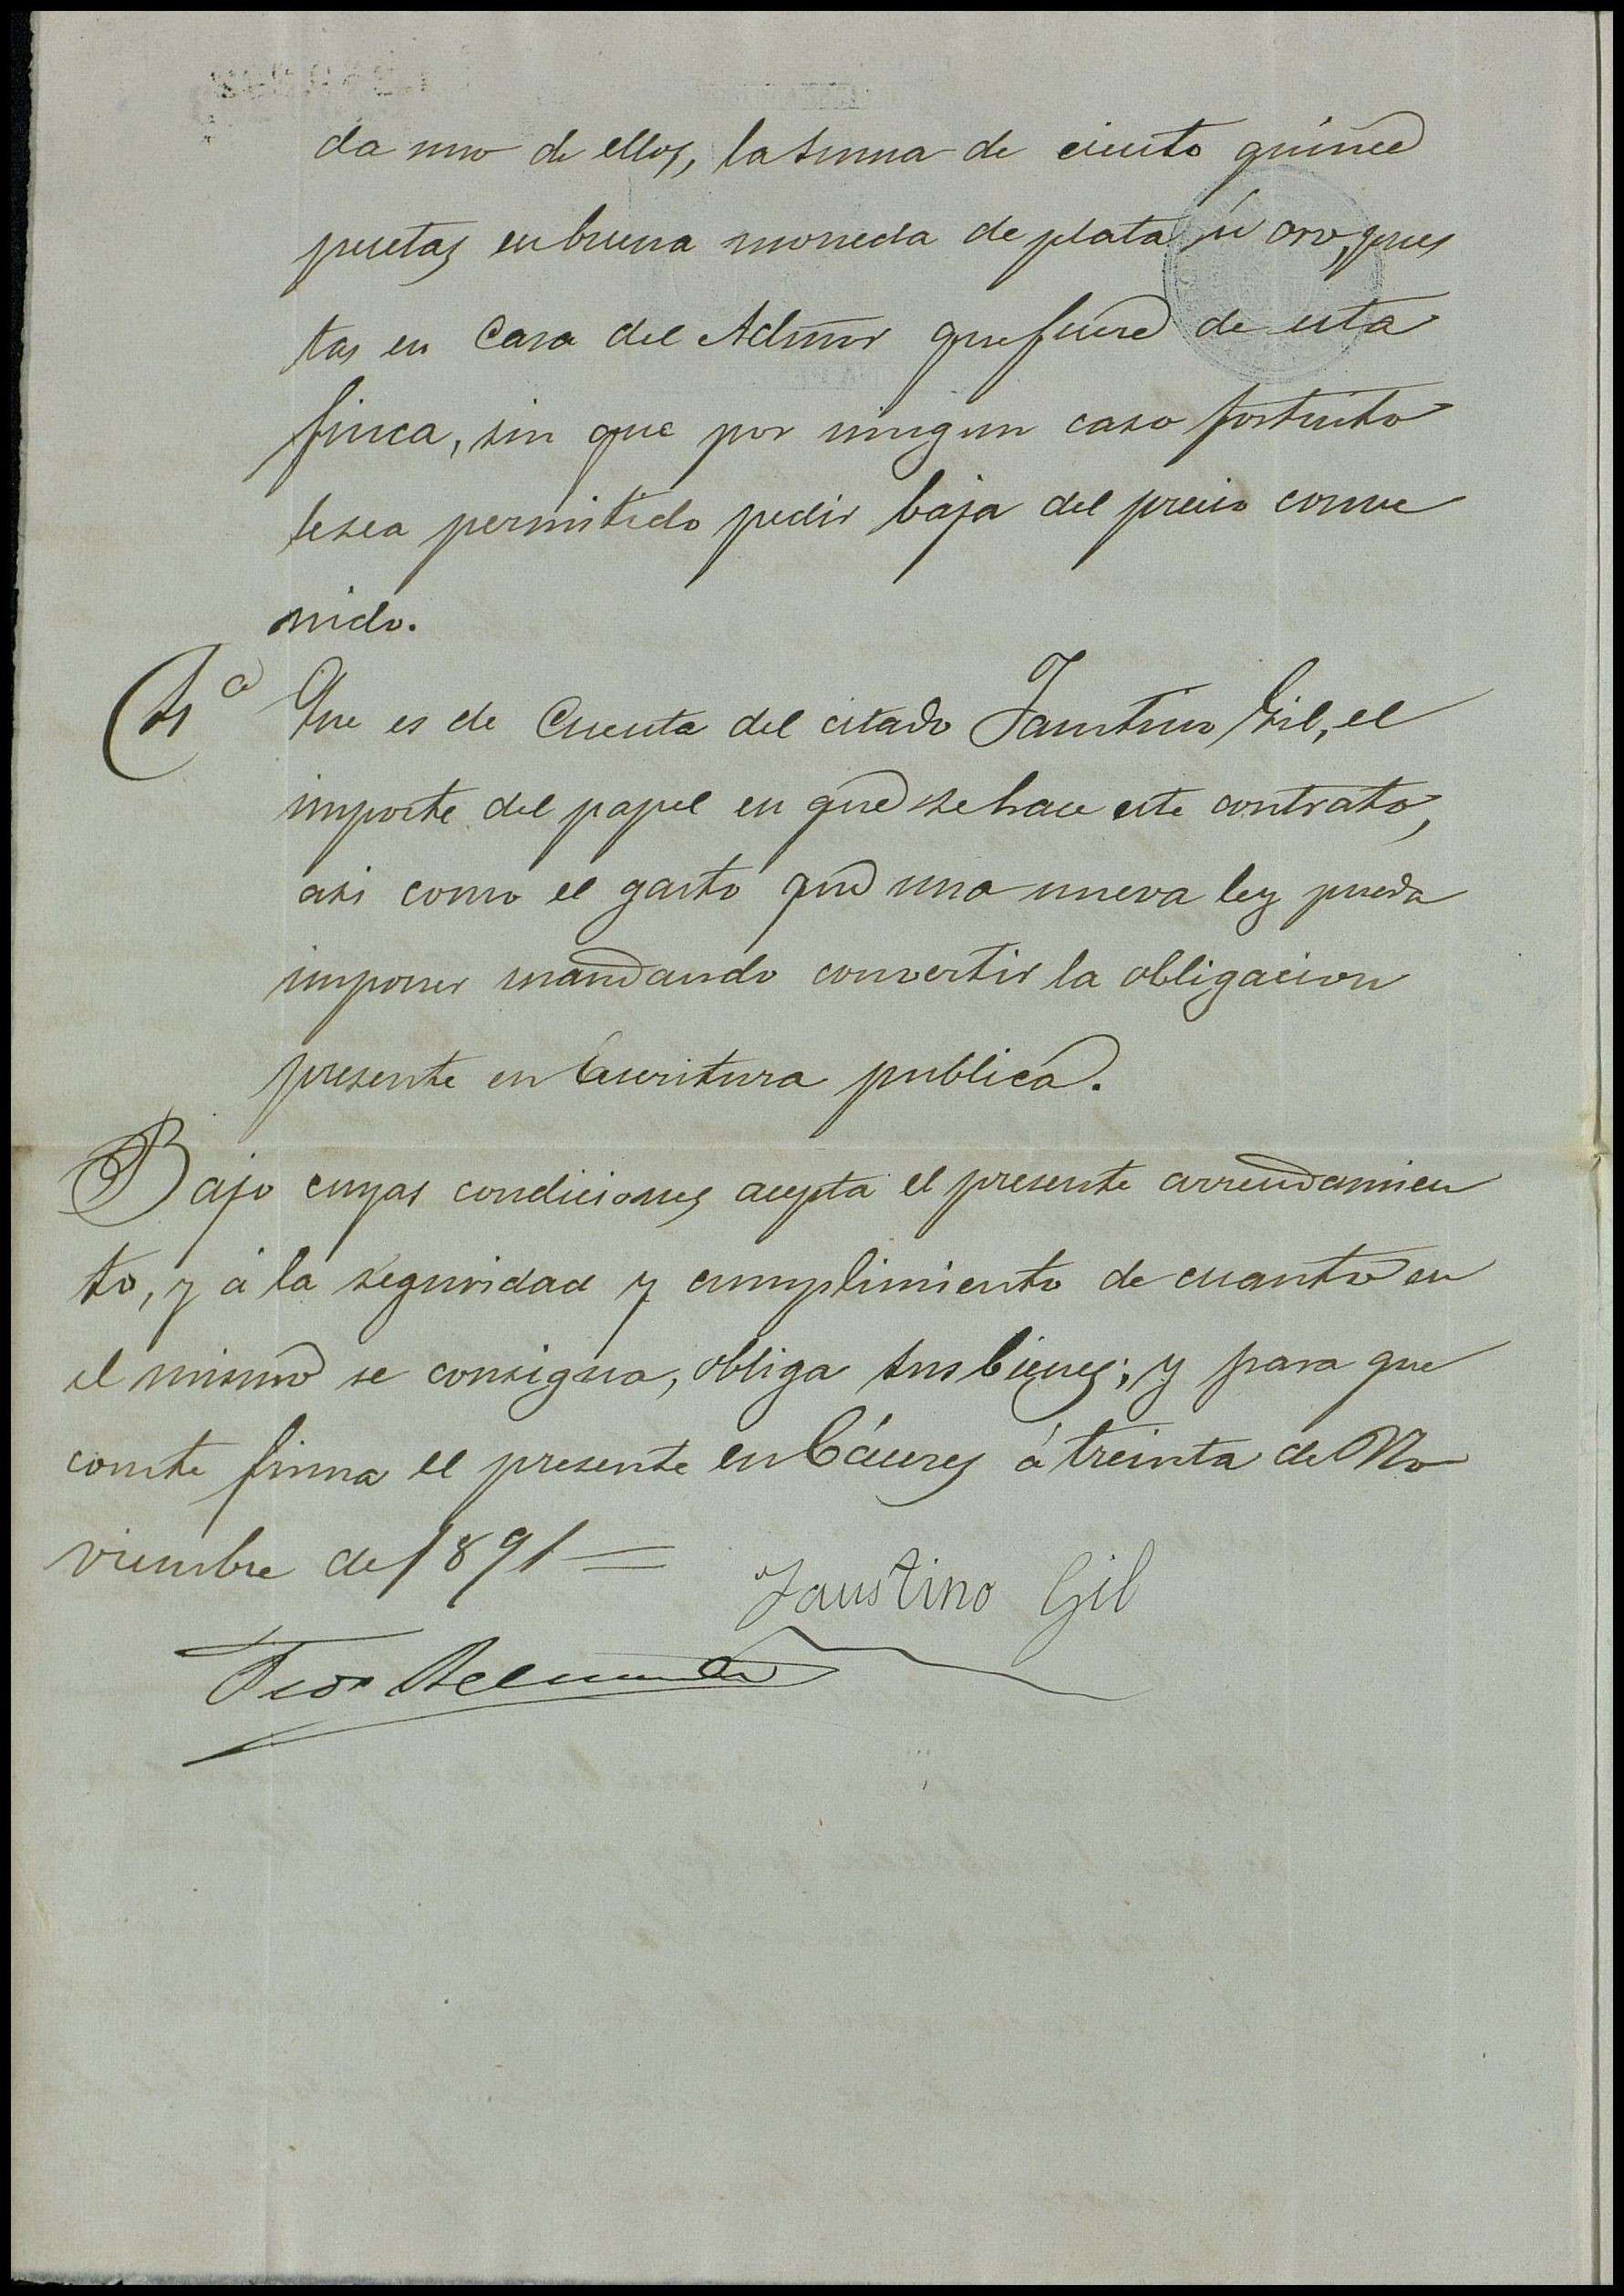 da uno de ellos, la suma de ciento quince
pesetas en buena moneda de plata ú oro, pues
tas en Casa del Admor que fuere de esta
finca, sin que por ningun caso fortuito
le sea permitido pedir baja del precio conve
nido.
4ª Que es de Cuenta del citado Faustino Gil, el
importe del papel en que se hace este contrato,
asi como el gasto que una nueva ley pueda
imponer mandando convertir la obligacion
presente en Escritura publica.
Bajo cuyas condiciones acepta el presente arrendamien
to, y á la seguridad y cumplimiento de cuanto en
el mismo se consigna, obliga sus bienes; y para que
conste firma el presente en Cáceres á treinta de No
viembre de 1891=
Faustino Gil